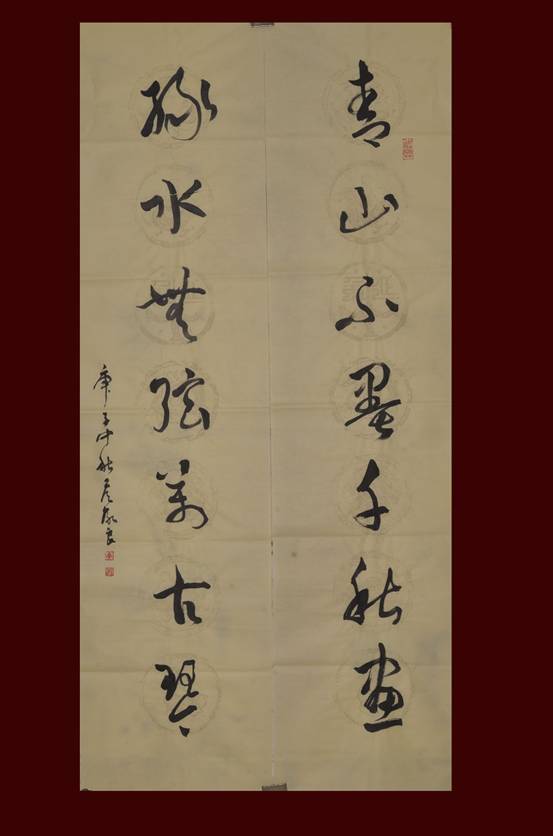 青山不墨千秋畫
綠水無弦萬古琴
庚子中秋